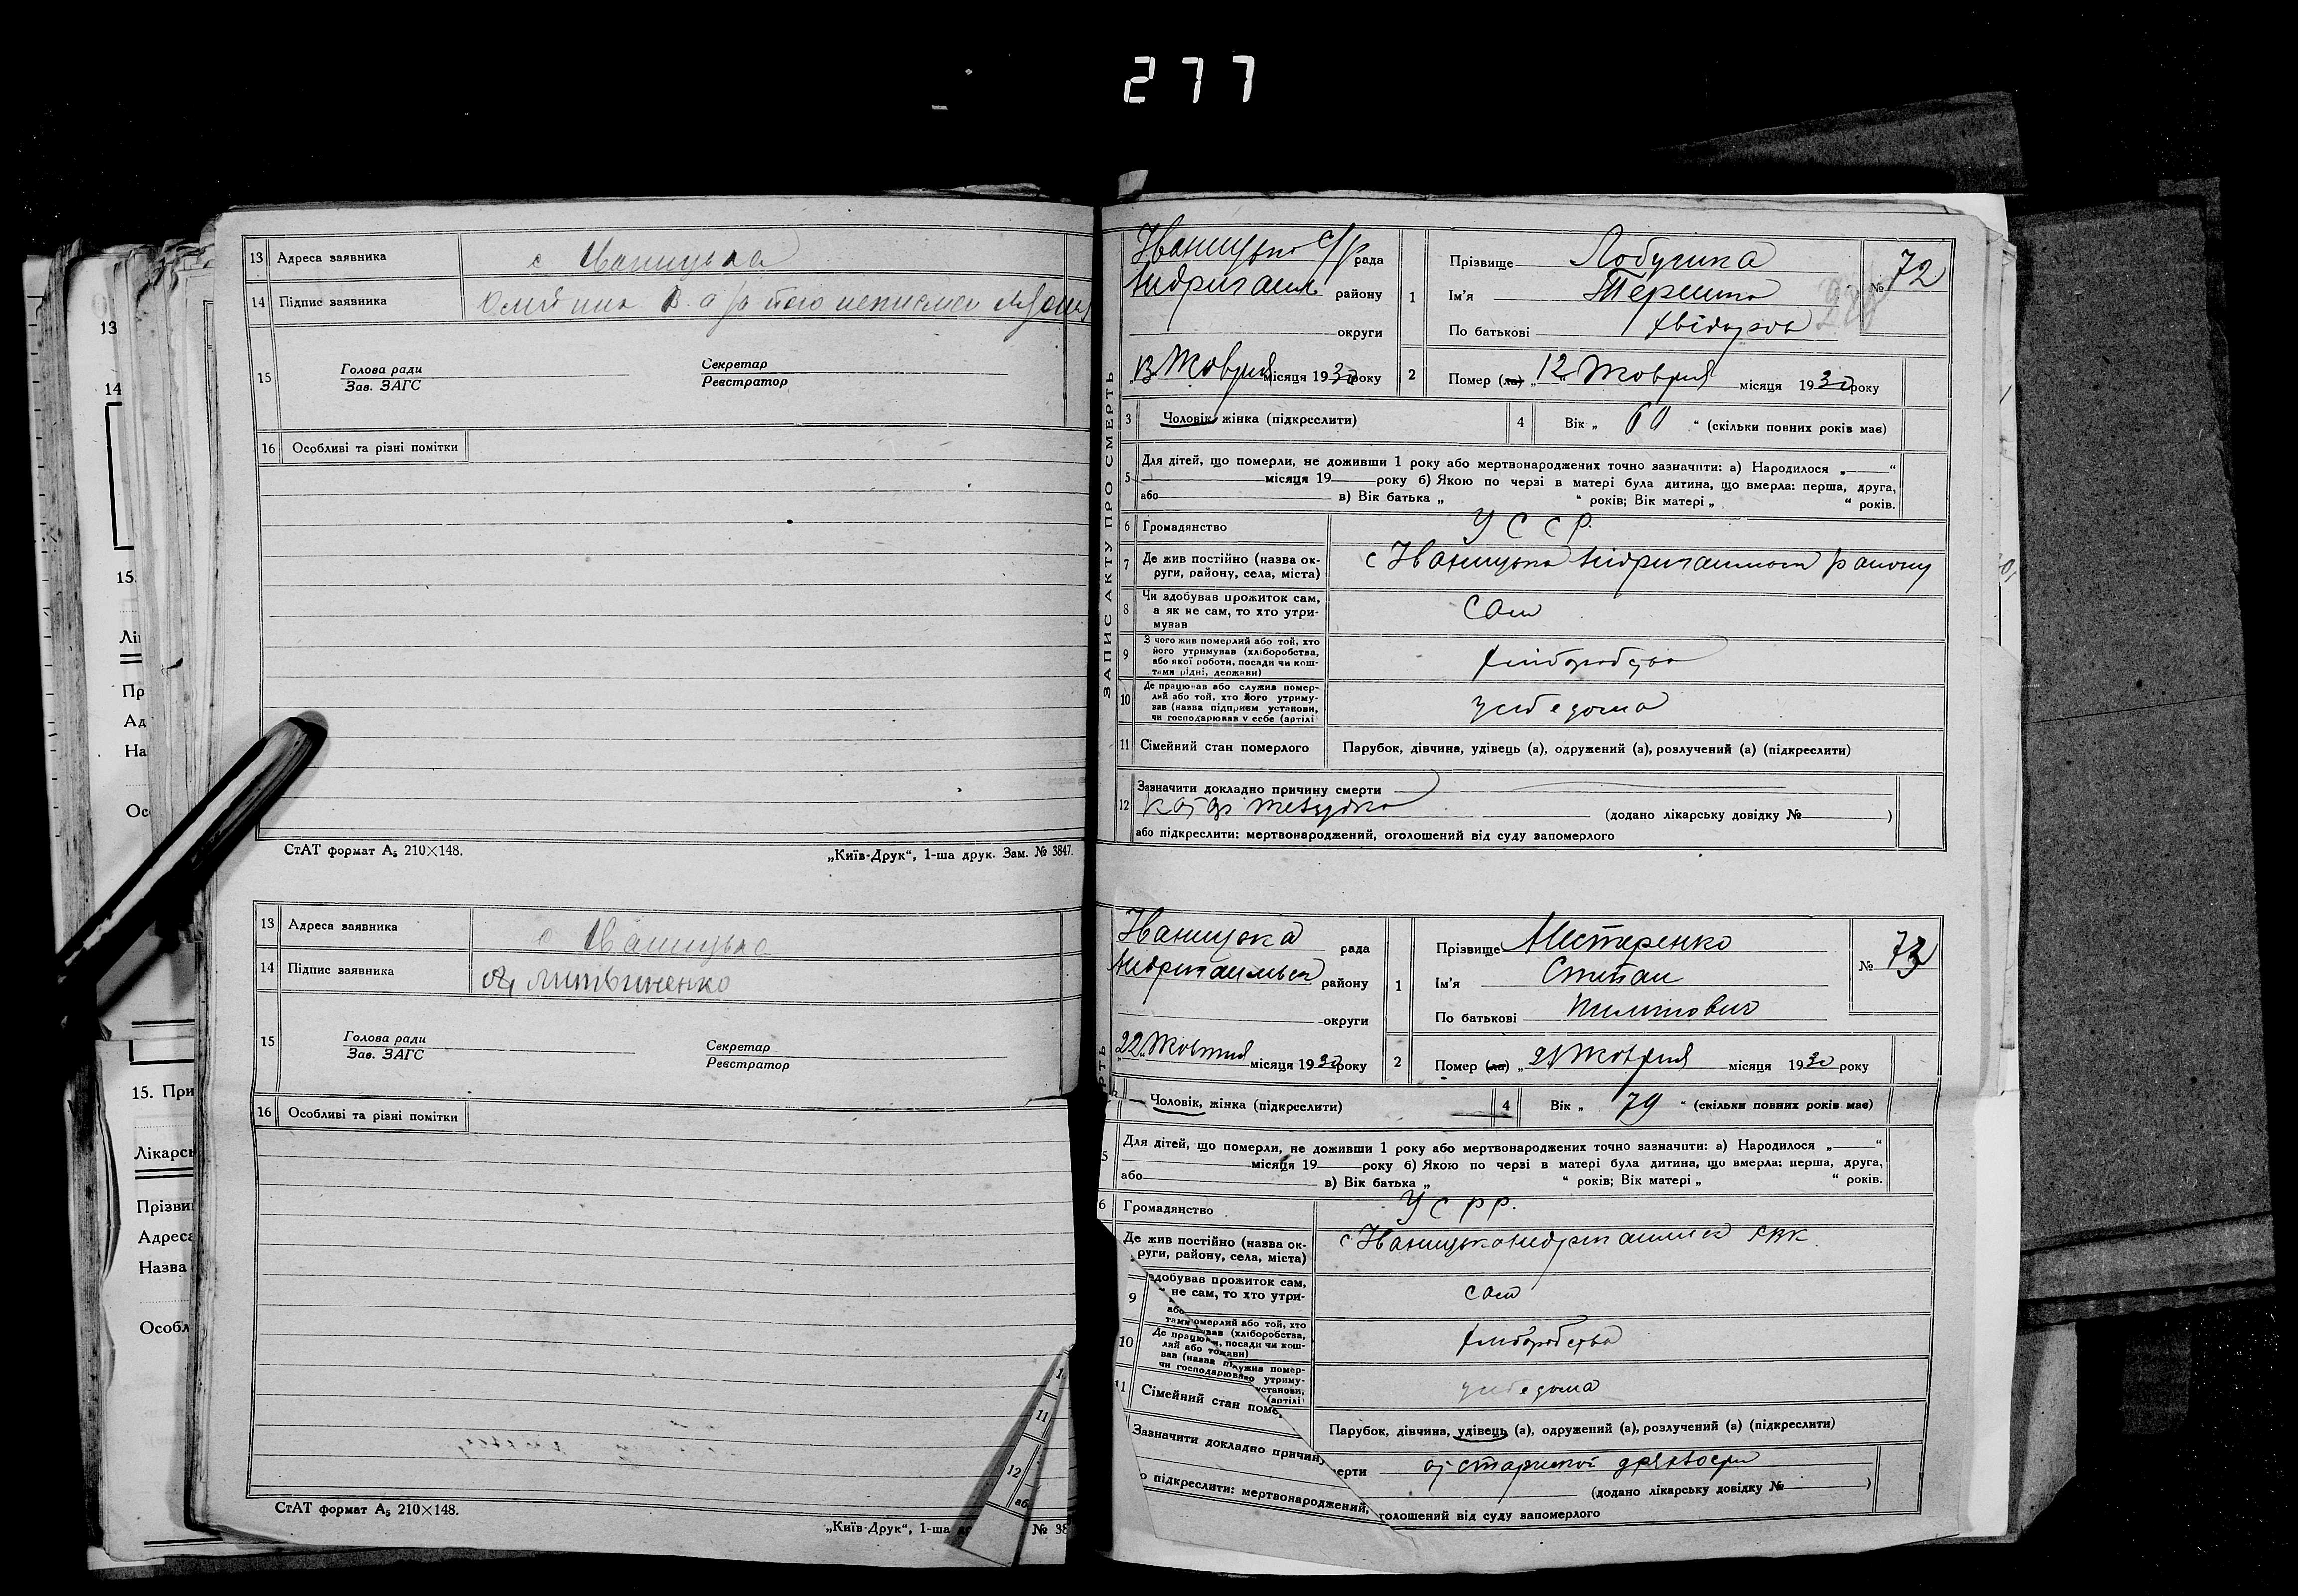 277
13 Адреса заявника с Іваницька
14 Підпис заявника
15 Голова ради Секретар
Зав. ЗАГС Реєстратор
16 Особливі та різні помітки
СтАТ формат А₅ 210×148. „Київ-Друк“, 1-ша друк. Зам. № 3847.
13 Адреса заявника с Іваницька
14 Підпис заявника Литвиненко
15 Голова ради Секретар
Зав. ЗАГС Реєстратор
16 Особливі та різні помітки
СтАТ формат А₅ 210×148.
„Київ-Друк“, 1-ша № 38
13
14
15.
Лі
Пр
Ад
На
Ос
15. При
Лікарсь
Прізви
Адреса
Назва
Особл
ЗАПИС АКТУ ПРО СМЕРТЬ
Іваницька с/р рада
району
округи
13 Жовтня місяця 1930 року
1 Прізвище
Ім'я
По батькові
№ 72
2 Помер (ла) „12 Жовтня місяця 1930 року
3 Чоловік, жінка (підкреслити) 4 Вік „ 60 “ (скільки повних років має)
5 Для дітей, що померли, не доживши 1 року або мертвонароджених точно зазначити: а) Народилося „ “
місяця 19 року б) Якою по черзі в матері була дитина, що вмерла: перша, друга,
або в) Вік батька „ “ років; Вік матері „ “ років.
6 Громадянство УССР.
7 Де жив постійно (назва ок-
руги, району, села, міста) с Іваницька району
8 Чи здобував прожиток сам,
а як не сам, то хто утри-
мував сам
9 З чого жив померлий або той, хто
його утримував (хліборобства,
або якої роботи, посади чи кош-
тами рідні, держави) хліборобства
10 Де працював або служив помер-
лий або той, хто його утриму-
вав (назва підприєм установи,
чи господарював у себе (артілі) у себе дома
11 Сімейний стан померлого Парубок, дівчина, удівець (а), одружений (а), розлучений (а) (підкреслити)
12 Зазначити докладно причину смерти
(додано лікарську довідку № )
або підкреслити: мертвонароджений, оголошений від суду запомерлого
Іваницька рада
району
округи
22 Жовтня місяця 1930 року
1 Прізвище Нестеренко
Ім'я Степан
По батькові
№ 73
2 Помер (ла) „21 Жовтня місяця 1930 року
Чоловік, жінка (підкреслити) 4 Вік „ 79 “ (скільки повних років має)
5 Для дітей, що померли, не доживши 1 року або мертвонароджених точно зазначити: а) Народилося „ “
місяця 19 року б) Якою по черзі в матері була дитина, що вмерла: перша, друга,
або в) Вік батька „ “ років; Вік матері „ “ років.
6 Громадянство УСРР.
Де жив постійно (назва ок-
руги, району, села, міста) с Іваницька
здобував прожиток сам,
не сам, то хто утри- сам
9 або
тами омерлий або той, хто
10 Де працю вав (хліборобства, хліборобства
лий або то посади чи кош-
вав (назва п служив помер-
чи господарював утриму-
установи,
(артілі у себе дома
11 Сімейний стан поме Парубок, дівчина, удівець (а), одружений (а), розлучений (а) (підкреслити)
Зазначити докладно причин ерти
(додано лікарську довідку № )
о підкреслити: мертвонароджений, голошений від суду запомерлого
11
12
аб